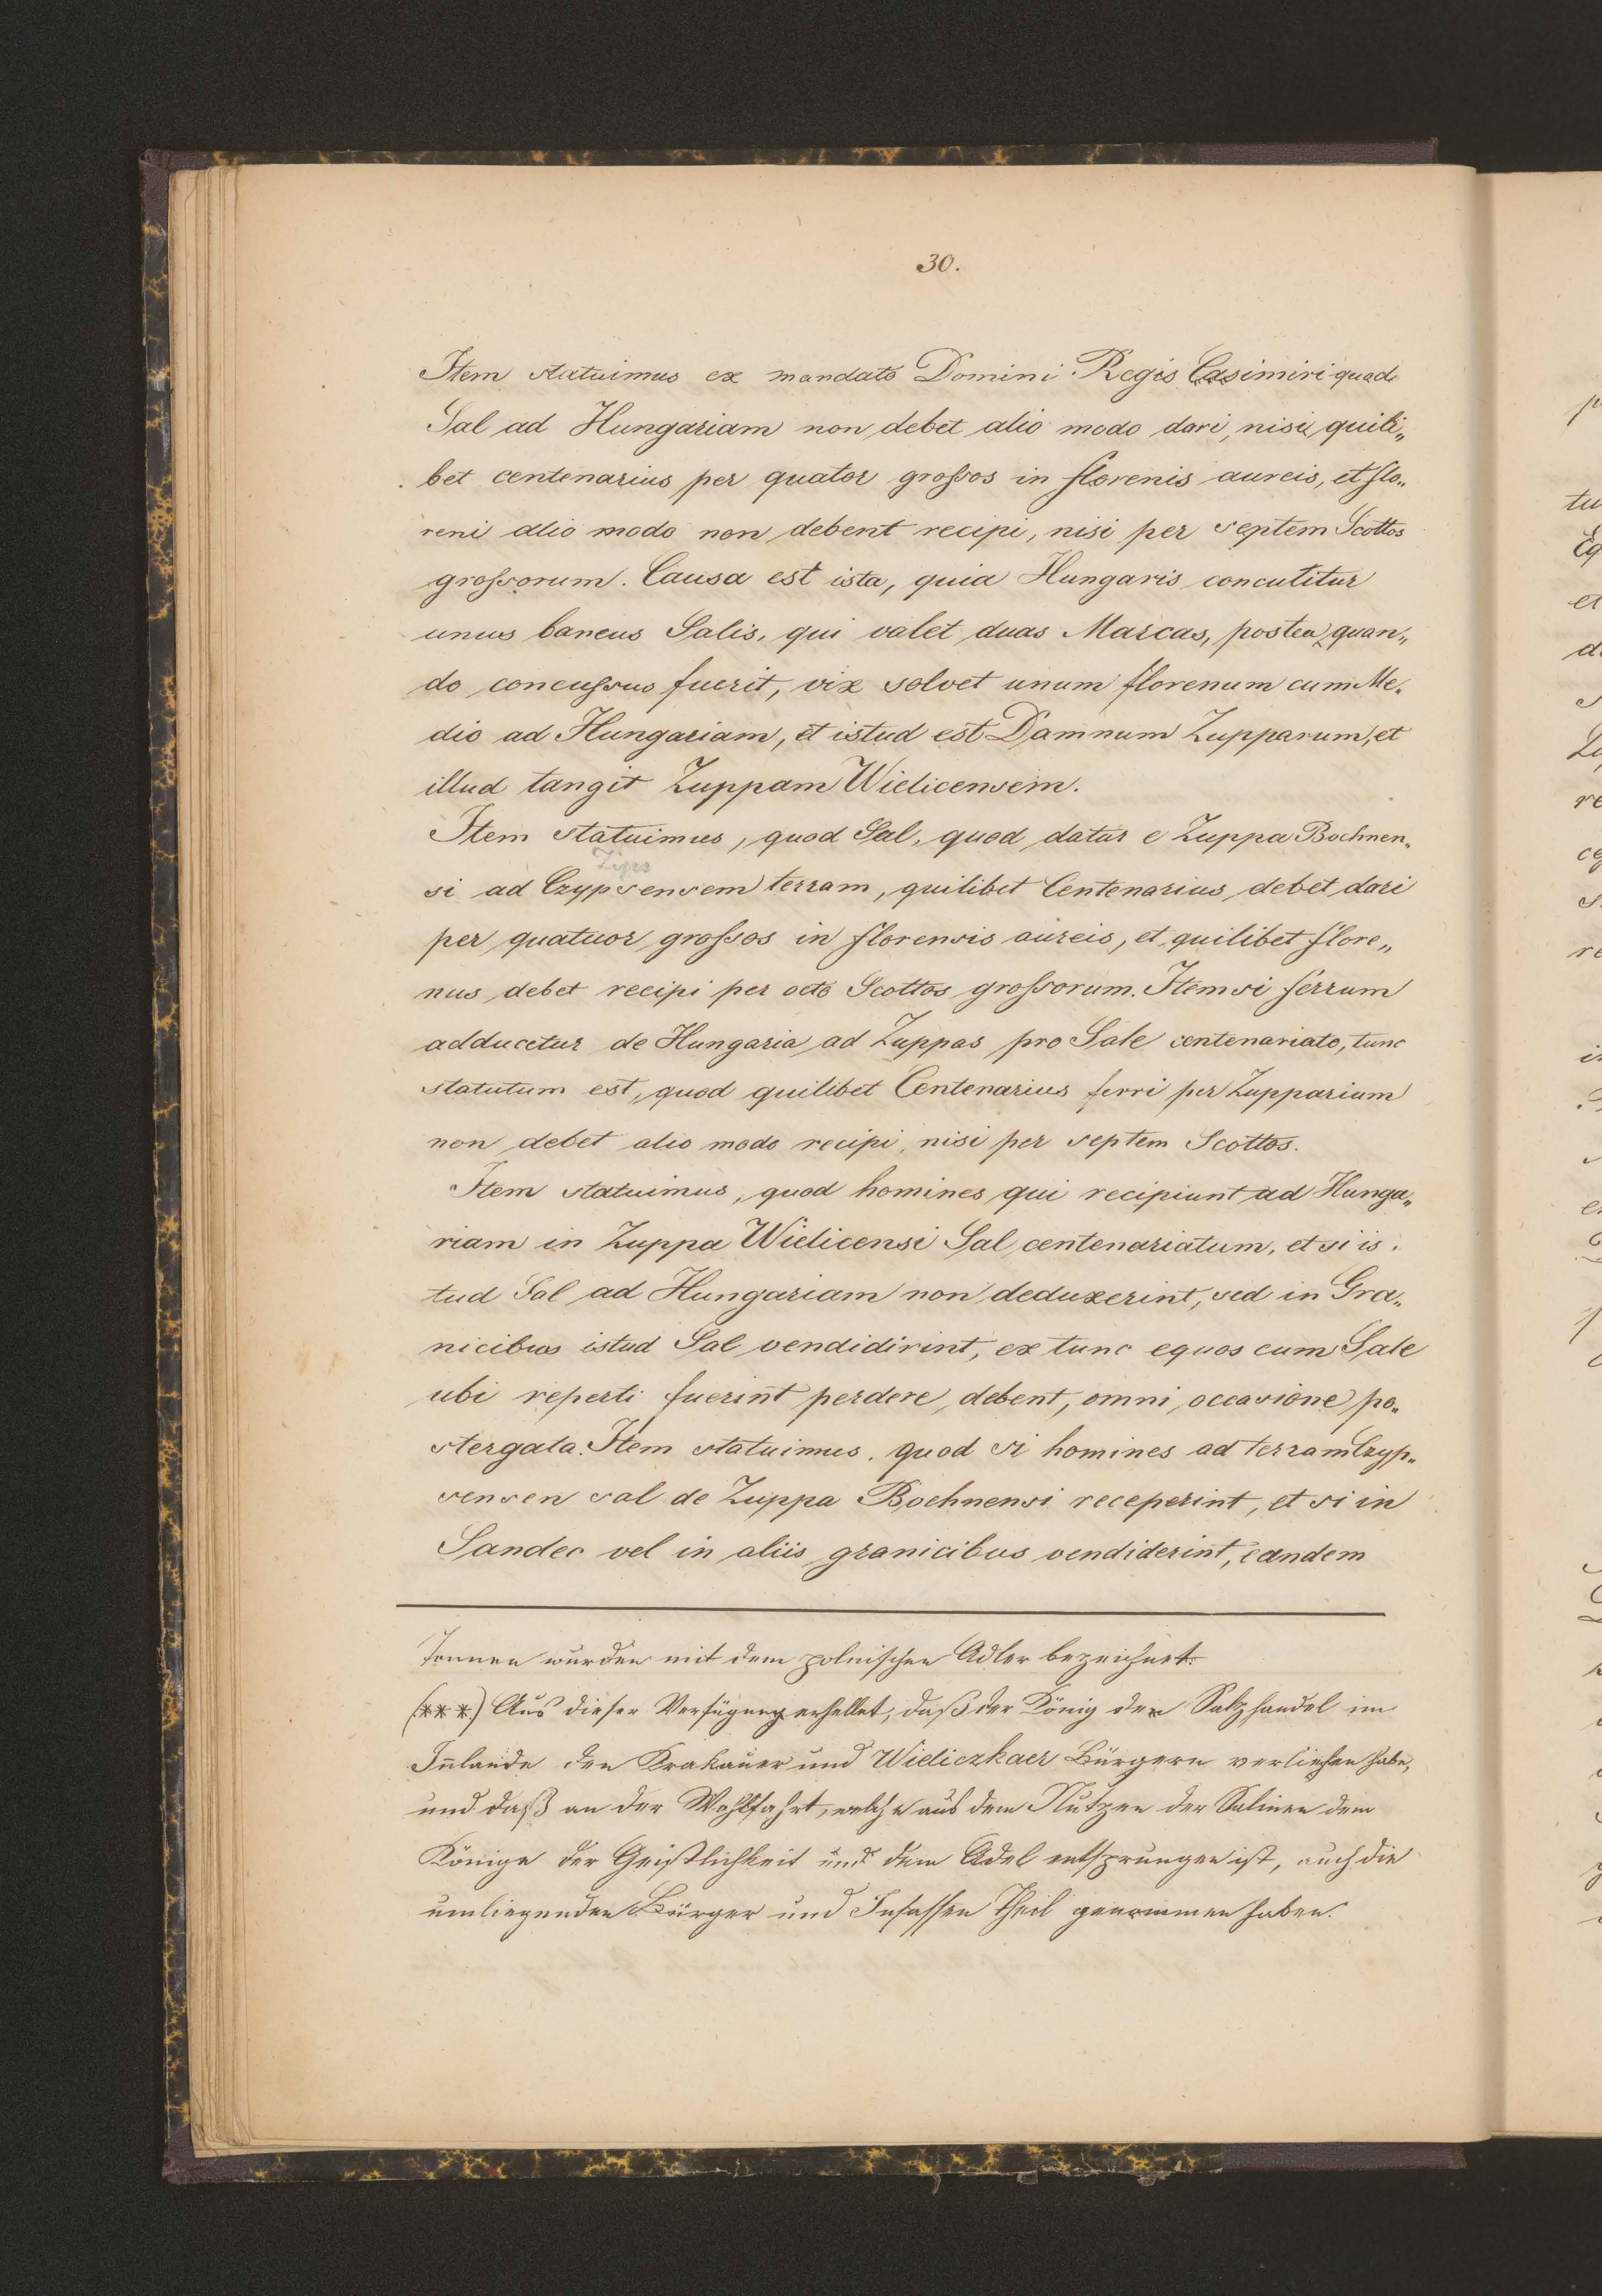 30.
Item statuimus ex mandato Domini Regis Casimiri quod
Sal ad Hungariam non debet alio modo dari, nisi quili„
bet centenarius per quator grossos in florenis aureis, et flo„
reni alio modo non debent recipi, nisi per septem Scottos
grossorum. Causa est ista, quia Hungaris concutitur
unus bancus Salis, qui valet duas Marcas, postea quan„
do concussus fuerit, vix solvet unum florenum cum Me„
dio ad Hungariam, et istud est Damnum Zupparum, et
illud tangit Zuppam Wielicensem.
Item statuimus, quod Sal, quod datur e Zuppa Bochnen„
Zips
si ad Czypsensem terram, quilibet Centenarius debet dari
per quatuor grossos in florensis aureis, et quilibet flore„
nus debet recipi per octo Scottos grossorum. Item si ferrum
adducetur de Hungaria ad Zuppas pro Sale centenariato, tunc
statutum est, quod quilibet Centenarius ferri per Zupparium
non debet alio modo recipi, nisi per septem Scottos.
Item statuimus, quod homines qui recipiunt ad Hunga„
riam in Zuppa Wielicensi Sal centenariatum, et si is„
tud Sal ad Hungariam non deduxerint, sed in Gra„
nicibus istud Sal vendidirint, ex tunc equos cum Sale
ubi reperti fuerint perdere debent, omni occasione po„
stergata. Item statuimus, quod si homines ad terram Czyp„
sensen sal de Zuppa Bochnensi receperint, et si in
Sandec vel in aliis granicibus vendiderint, eandem
Tonnen wurden mit dem polnischen Adler bezeichnet.
(***) Aus dieser Verfügung erhellet, daß der König den Salzhandel im
Inlande den Krakauer und Wieliczkaer Bürgern verliehen habe,
und daß an der Wohlfahrt, welche aus dem Nutzen der Salinen dem
Könige der Geistlichkeit und dem Adel entsprungen ist, auch die
umliegenden Bürger und Insassen Theil genommen haben.